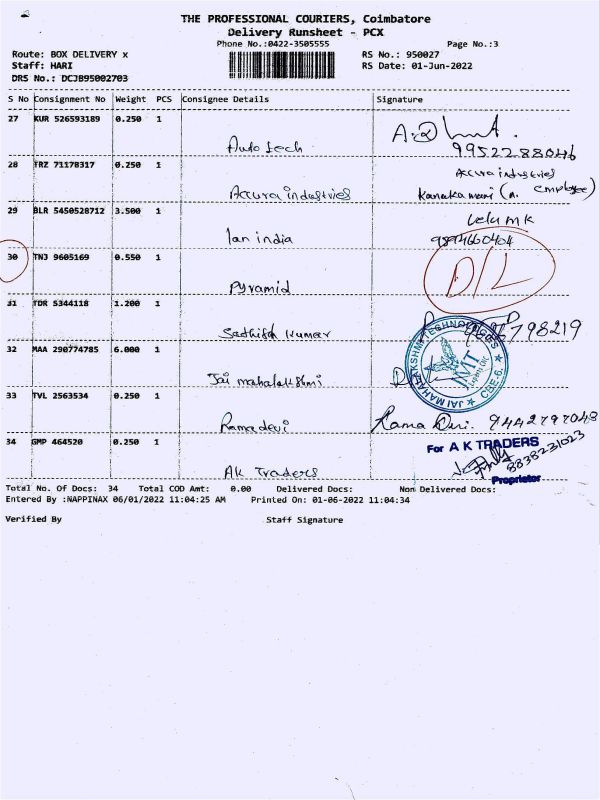 THE PROFESSIONAL COURIERS, Coimbatore
Delivery Runsheet - PCX
Phone No.:0422-3505555
Page No.:3
Route: BOX DELIVERY x
RS No.: 950027
Staff: HARI
RS Date: 01-Jun-2022
DRS No.: DCJB95002703
S No Consignment No Weight PCS Consignee Details Signature
27 KUR 526593189 0.250 1
Auto tech
9952288046
28 TRZ 71178317 0.250 1
Accura industries
Accura industries
Kanakamani (A. employee)
29 BLR 5450528712 3.500 1
Ian india
Velu MK
9894660404
30 TNJ 9605169 0.550 1
Pyramid
D/L
31 TDR 5344118 1.200 1
Sathish Kumar
798219
32 MAA 290774785 6.000 1
Jai mahalakshmi
JAI MAHALAKSHMI TECHNOLOGIES
JMT
CBE-6.
33 TVL 2563534 0.250 1
Ramadevi
Rama Devi. 9442797048
34 GMP 464520 0.250 1
AK Traders
For A K TRADERS
8838231023
Proprietor
Total No. Of Docs: 34 Total COD Amt: 0.00 Delivered Docs: Non Delivered Docs:
Entered By :NAPPINAX 06/01/2022 11:04:25 AM Printed On: 01-06-2022 11:04:34
Verified By
Staff Signature